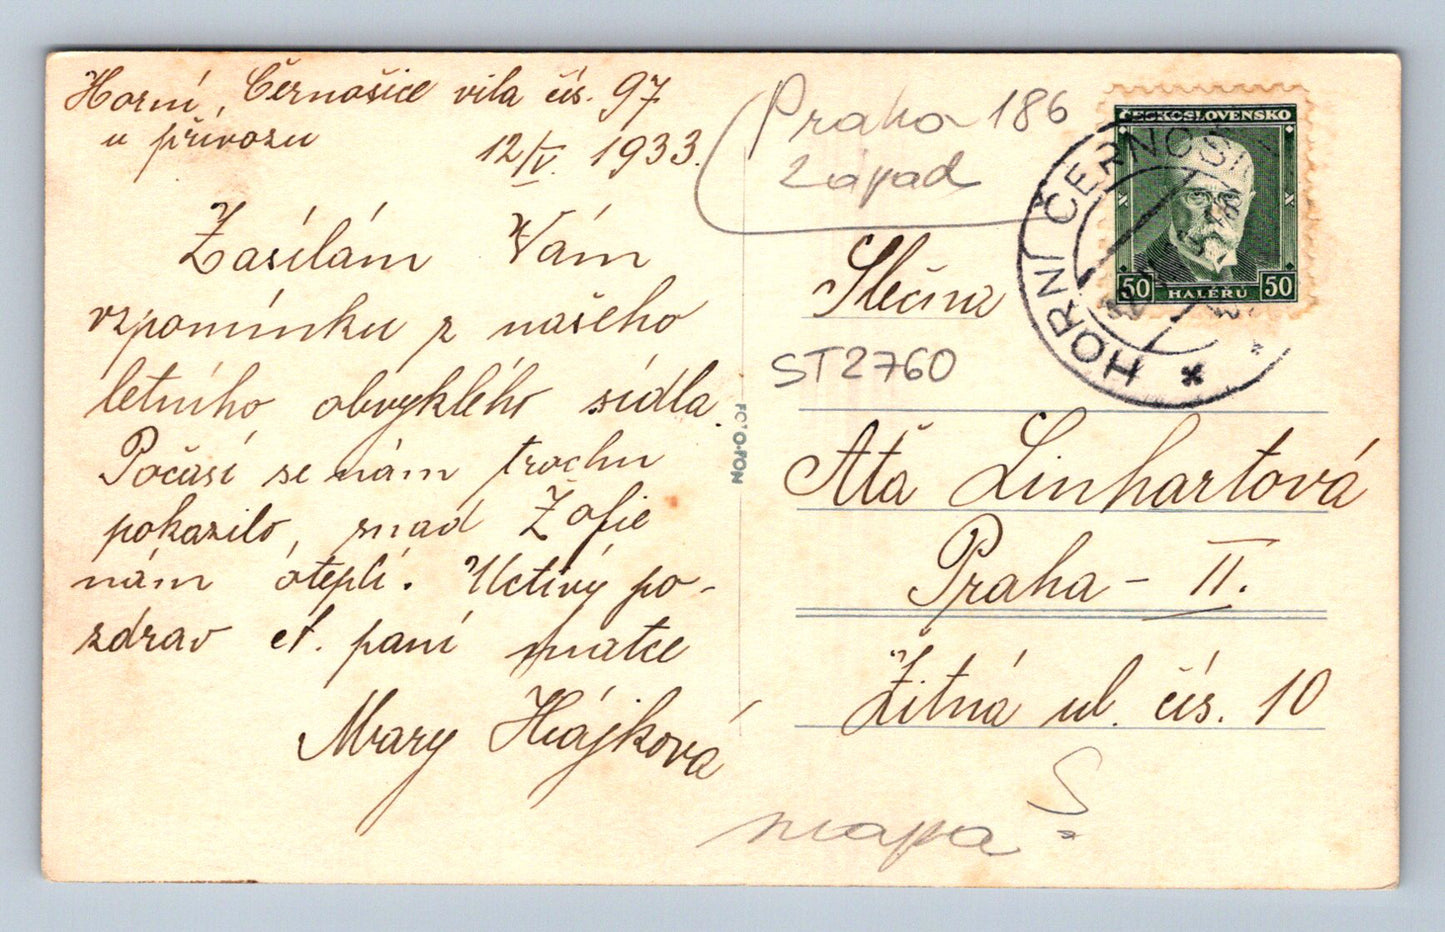 Horní, Černošice vila čís. 97
u přívozu
12/V. 1933.
Zasílám Vám
vzpomínku z našeho
letního obvyklého sídla.
Počasí se nám trochu
pokazilo, snad Žofie
nám oteplí. Uctivý po-
zdrav ct. paní matce
Mary Hájková
Praha 186
západ
ČESKOSLOVENSKO
50 HALÉŘŮ 50
HORNÍ ČERNOŠI
Slečna
ST2760
Aťa Linhartová
Praha - II.
Žitná ul. čís. 10
mapa
S